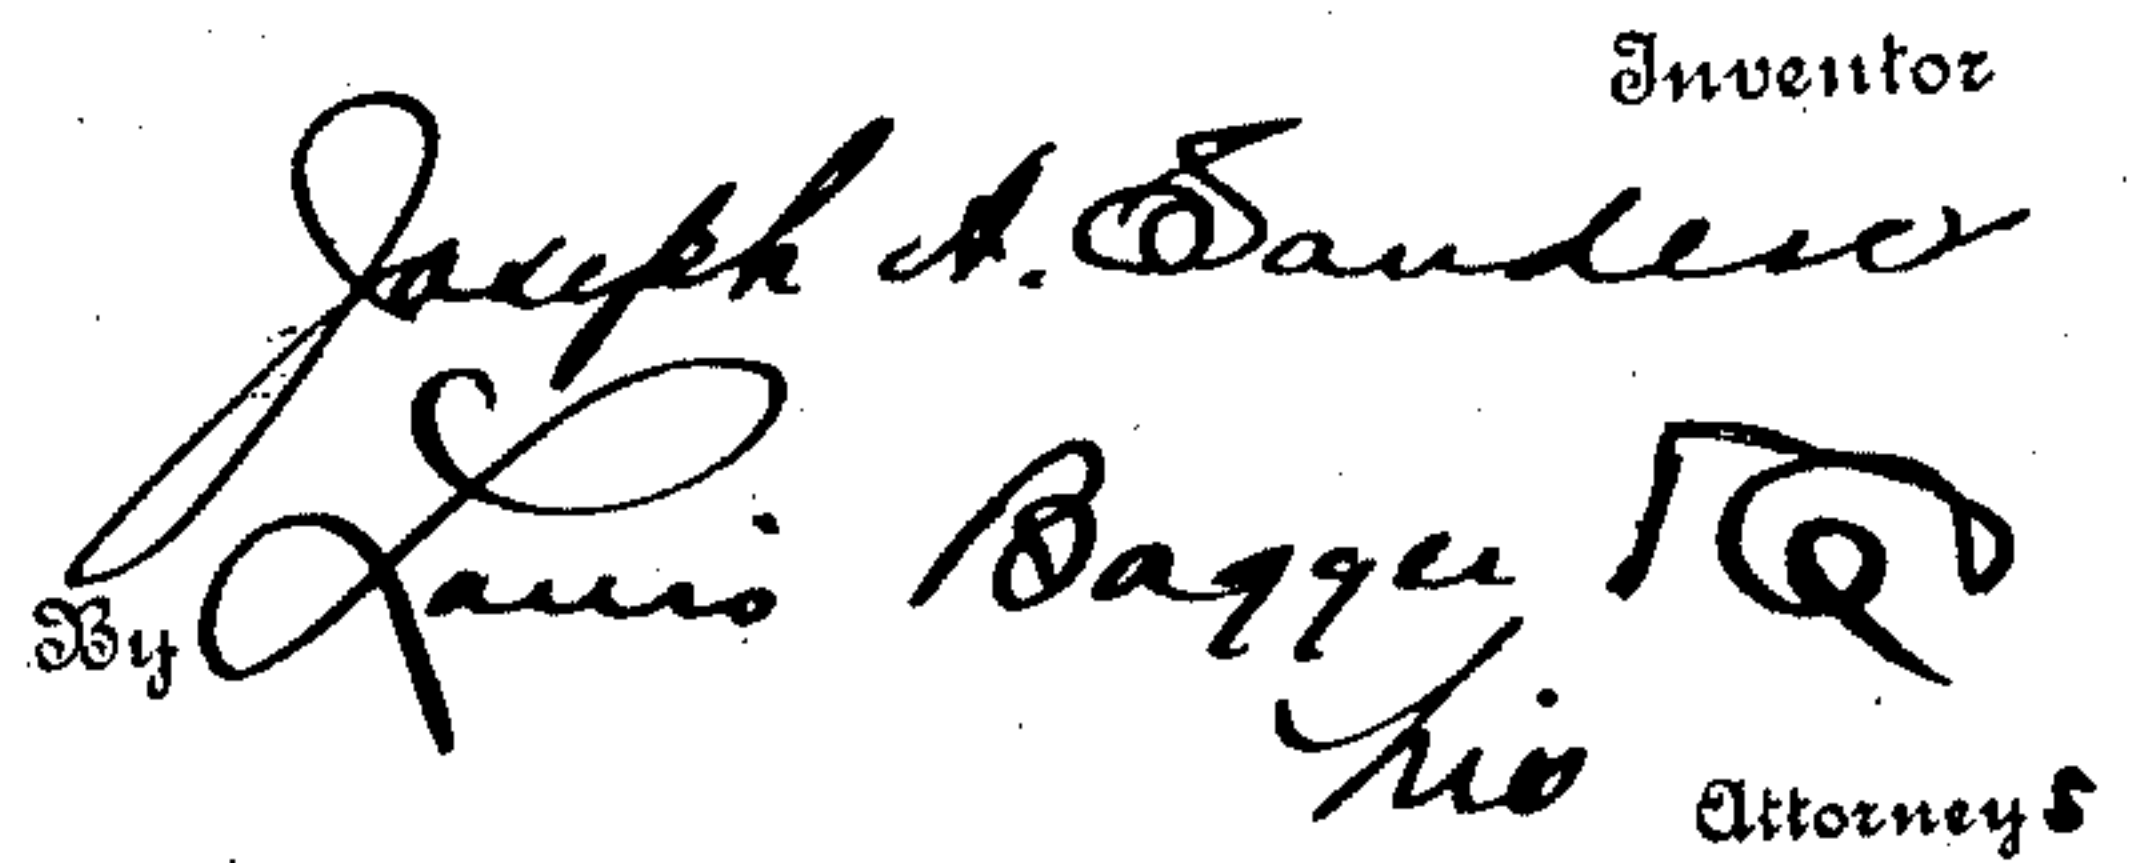 Inventor
Joseph A. Sanders
By Louis Bagger & Co.
his Attorneys